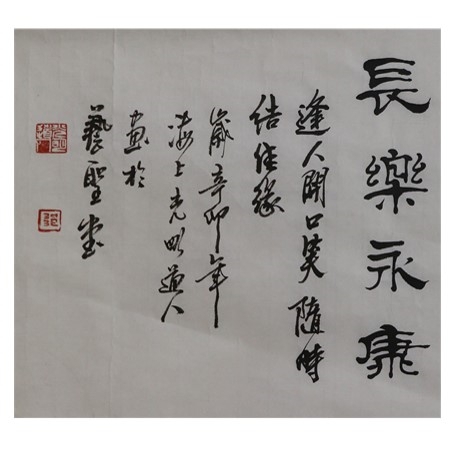 長樂永康
逢人開口笑隨時
結佳緣
歲辛卯年
海上克明道人
畫於
藝聖堂